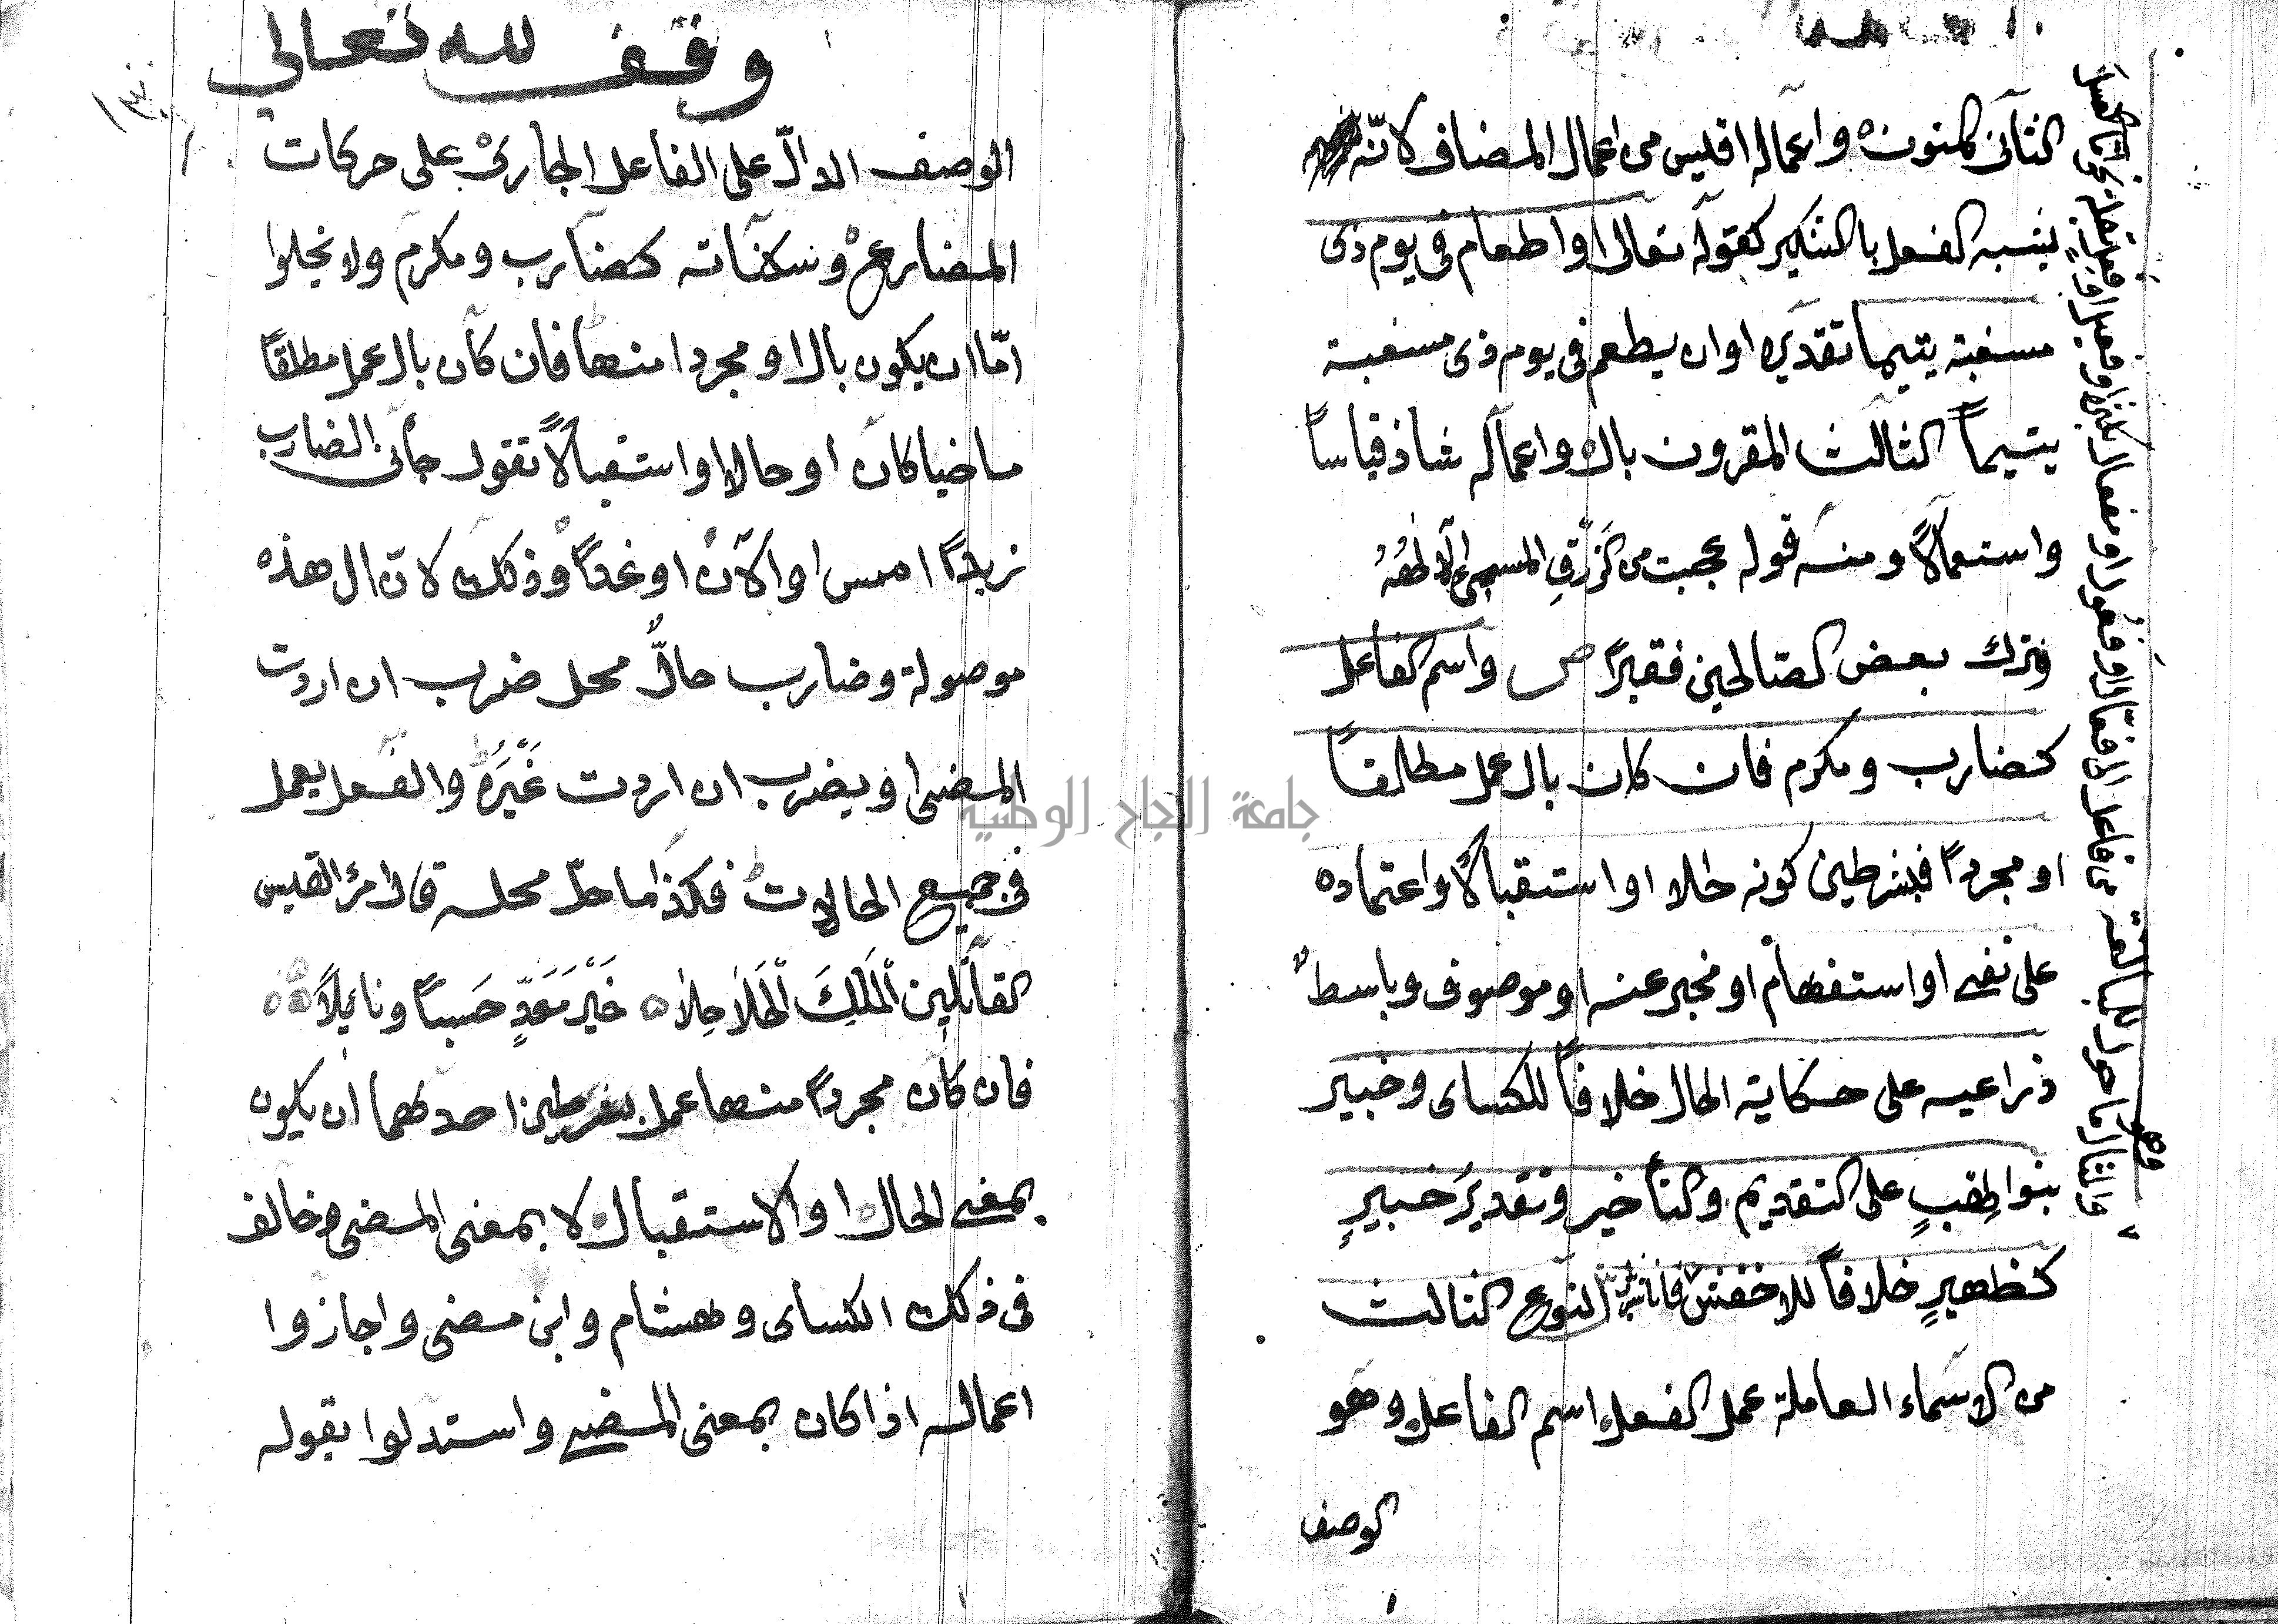 الثاني المنون واعماله اقيس من اعمال المضاف لانّه
يشبه الفعل بالتنكير كقوله تعالى او اطعام في يوم ذى
مسغبة يتيما تقديره او ان يطعم في يوم ذى مسغبة
يتيماً الثالث المقرون بال واعماله شاذ قياساً
واستعمالاً ومنه قوله عجبت من الرزق المسيئ الهه
وترك بعض الصالحين فقيراً ص واسم الفاعل
كضارب ومكرم فان كان بال عمل مطلقاً
او مجرداً فبشرطين كونه حالا او استقبالاً واعتماده
على نفي او استفهام او مخبر عنه او موصوف وباسط
ذراعيه على حكاية الحال خلافاً للكساى وخبير
بنوا لهب على التقديم والتأخير وتقدير خبير
كظهير خلافاً للاخفش النوع الثالث
من الاسماء العاملة عمل الفعل اسم الفاعل وهو
الوصف
والمثال وهو ما حول للمبالغة من فاعل الى فعّال او فعول او مفعال بكثرة او فعيل او فعل بقلة نحو اما العسل
وقف لله تعالى
١٣٠
الوصف الدالّ على الفاعل الجارى على حركات
المضارع وسكناته كضارب ومكرم ولا يخلوا
امّا ان يكون بال او مجردا منها فان كان بال عمل مطلقاً
ماضيا كان او حالا او استقبالاً تقول جأنى الضارب
زيداً امس او الآن او غداً وذلك لانّ ال هذه
موصولة وضارب حالّ محل ضرب ان اردت
المضى او يضرب ان اردت غَيْرَهُ والفعل يعمل
في جميع الحالات فكذا ما حلّ محله قال امرؤ القيس
القاتلين الْمَلِكَ الْحَلَاحِلَا خَيْرَ مَعَدٍّ حَسَبًا ونائلاً
فان كان مجرداً منها عمل بشرطين احدهما ان يكون
بمعنى الحال او الاستقبال لا بمعنى المضى وخالف
فى ذلك الكساى وهشام وابن مضى واجازوا
اعماله اذا كان بمعنى المضى واستدلوا بقوله
جامعة النجاح الوطنية